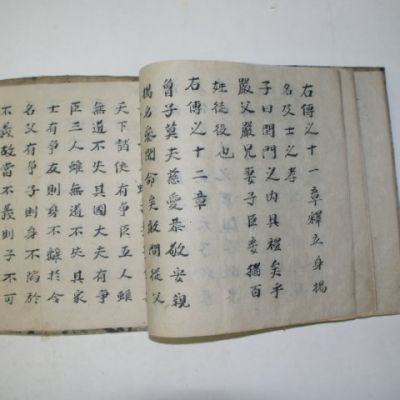 右傳之十一章釋立身揚
名及士之孝
子曰閨門之內具禮矣乎
嚴父嚴兄妻子臣妾猶百
姓徒役也
右傳之十二章
曾子莫夫慈愛恭敬安親
揚名參聞命矣敢問從父
天下諸侯有爭臣五人雖
無道不失其國大夫有爭
臣三人雖無道不失其家
士有爭友則身不離於令
名父有爭子則身不陷於
不義故當不義則子不可